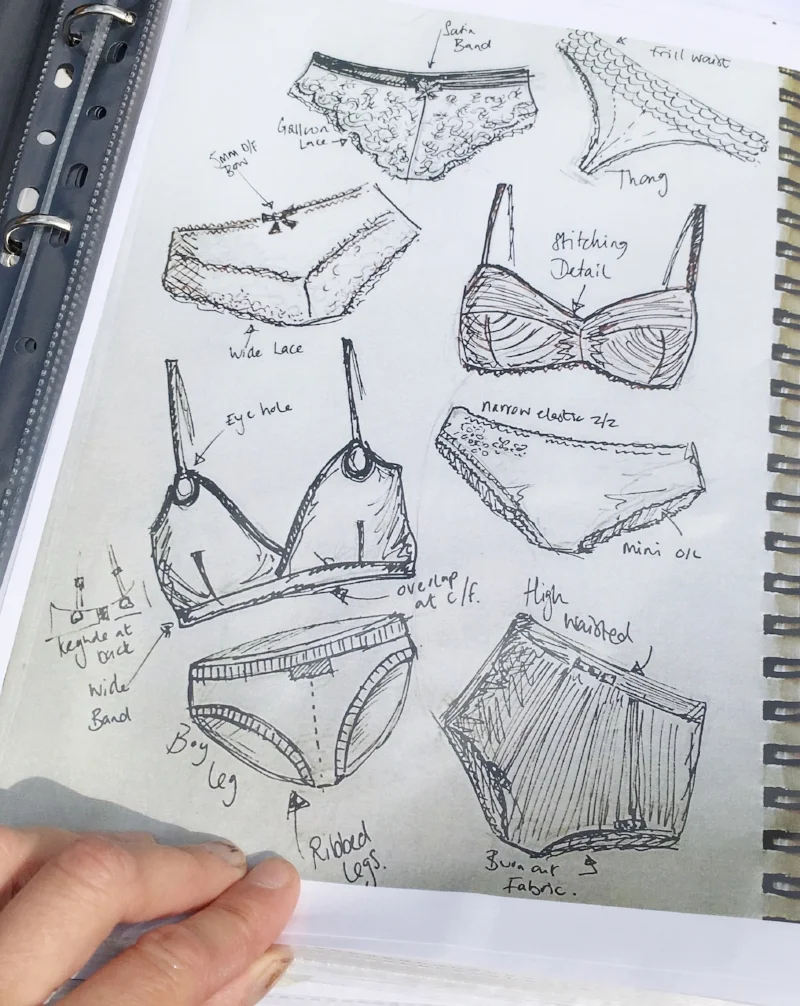 Satin
Band
Frill waist
Galloon
Lace
5mm D/F
Bow
Thong
Stitching
Detail
Wide Lace
Eye hole
narrow elastic 2/2
mini O/L
overlap
at C/F.
Keyhole at
back
Wide
Band
High
Waisted
Boy
leg
Ribbed
legs.
Burn out
Fabric.